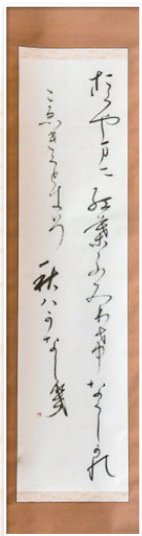 おくや万に紅葉ふみわけなくしかの
こゑきくときそ秋ハかなし幾